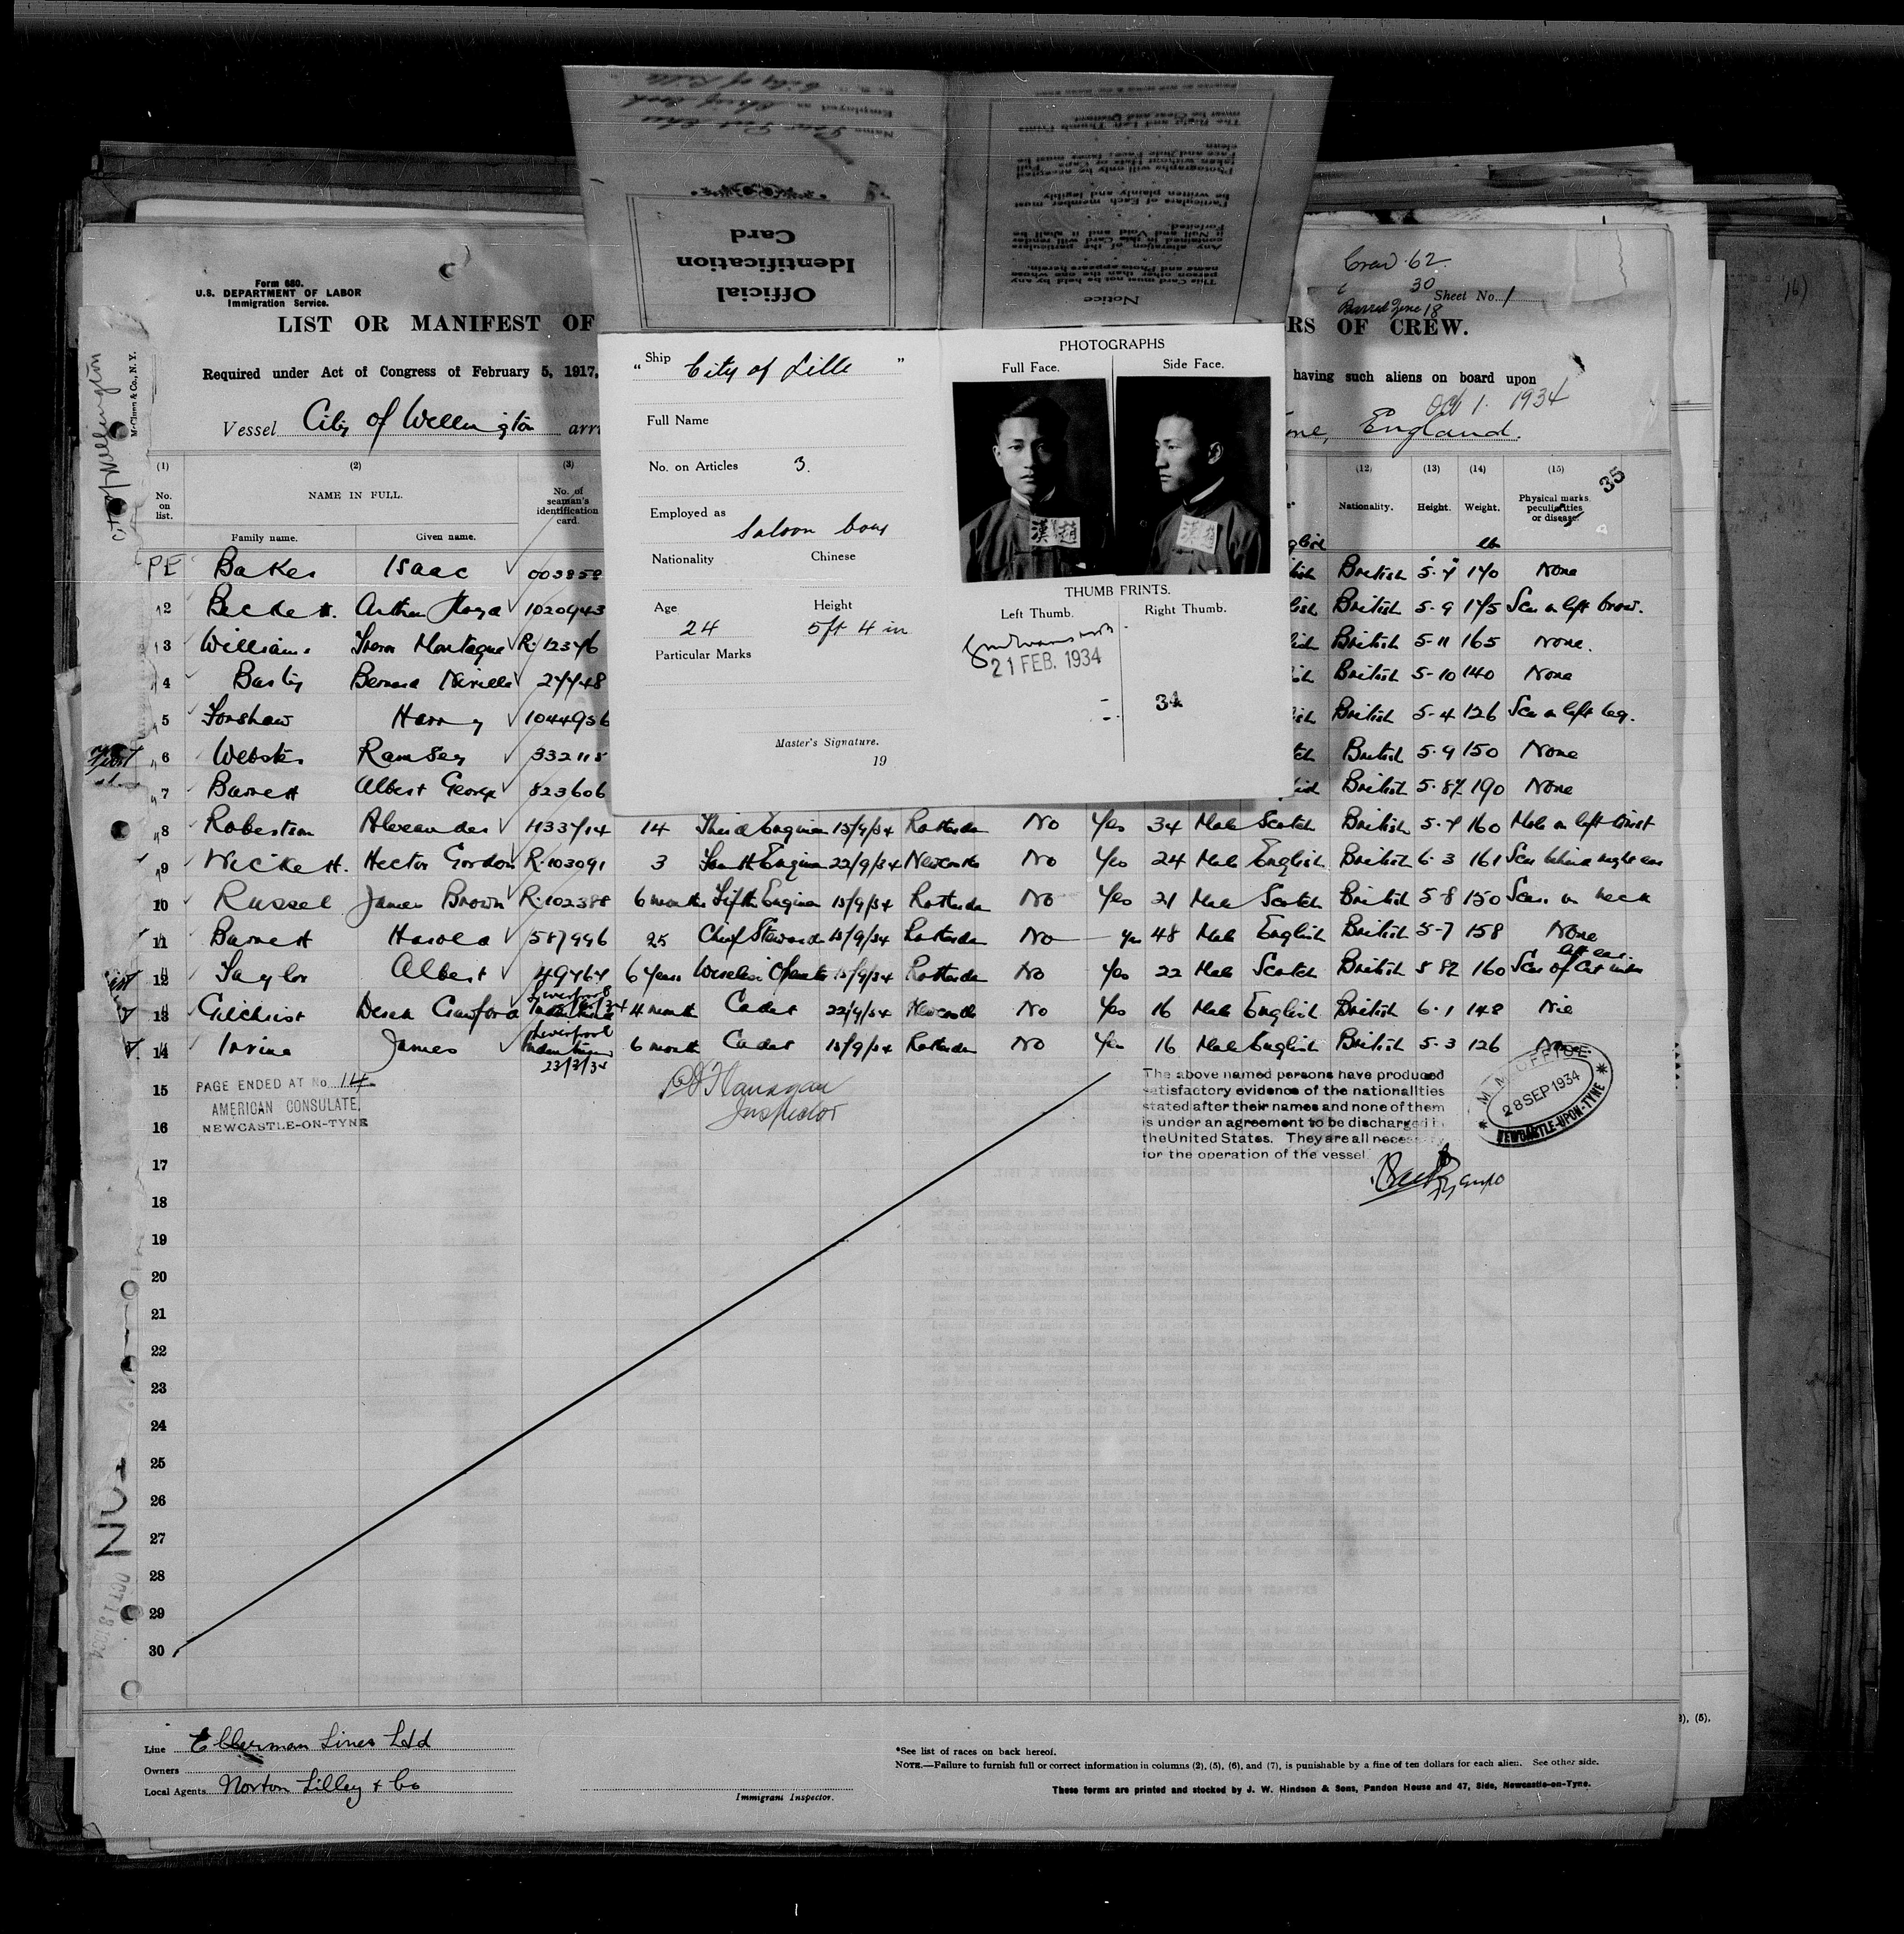 Official
Identification
Card
Notice
This Card must not be held by any
person other than the one whose
name and Photo appears herein.
Any alteration of the particulars
contained in this Card will render
it Null and Void and it shall be
forfeited.
Particulars of Each member must
be written plainly and legibly.
Photographs will only be accepted
taken without Hats or Caps. Full
Face and Side Face; faces must be
clean
The Right and Left Thumb Prints
must be Clear and Distinct.
Employed as
City of Lille
Form 680.
U.S. DEPARTMENT OF LABOR
Immigration Service.
LIST OR MANIFEST OF
RS OF CREW.
Crew 62
30
Sheet No. 1
Required under Act of Congress of February 5, 1917,
having such aliens on board upon
Oct 1. 1934
Vessel City of Wellington
England.
McClean & Co., N. Y.
"Ship City of Lille"
Full Name
No. on Articles 3.
Employed as Saloon boy
Nationality Chinese
Age 24 Height 5ft 4 in
Particular Marks
Master's Signature.
19
PHOTOGRAPHS
Full Face. Side Face.
漢趙
漢趙
THUMB PRINTS.
Left Thumb. Right Thumb.
21 FEB. 1934
34
35
(1) (2) (3) (12) (13) (14) (15)
No. on list. NAME IN FULL. No. of seaman's identification card. Nationality. Height. Weight. Physical marks, peculiarities or disease.
Family name. Given name.
PE Baker Isaac 003858 British 5-7 170 None
2 Beckett. Arthur 1020943 British 5-9 175 Scar on left brow.
3 Williams Montague R.12376 British 5-11 165 None.
4 Bernard Neville 27748 British 5-10 140 None
5 Forshaw Harry 1044936 British 5-4 126 Scar on left leg.
6 Webster Ramsey 332115 British 5-9 150 None
7 Barnett Albert George 823606 British 5-8½ 190 None
8 Robertson Alexander 1133714 14 Third Engineer 15/9/34 Rotterdam No Yes 34 Male Scotch British 5-7 160 Mole on left wrist
9 Wickett. Hector Gordon R.103091 3 Fourth Engineer 22/9/34 Newcastle No Yes 24 Male English British 6-3 161 Scar behind right ear
10 Russel James Brown R.102388 6 months Fifth Engineer 15/9/34 Rotterdam No Yes 21 Male Scotch British 5-8 150 Scar on neck
11 Barnett Harold 587996 25 Chief Steward 15/9/34 Rotterdam No Yes 48 Male English British 5-7 158 None
12 Taylor Albert 49767 6 Years Wireless Operator 15/9/34 Rotterdam No Yes 22 Male Scotch British 5 8½ 160 Scar of cut under left ear
13 Gilchrist Derek Crawford Liverpool 4 month Cadet 22/9/34 Newcastle No Yes 16 Male English British 6-1 148 Nil
14 Irvine James Liverpool 23/3/34 6 month Cadet 15/9/34 Rotterdam No Yes 16 Male English British 5-3 126 None
15
16
17
18
19
20
21
22
23
24
25
26
27
28
29
30
PAGE ENDED AT No. 14
AMERICAN CONSULATE,
NEWCASTLE-ON-TYNE
Flanagan
Inspector
The above named persons have produced
satisfactory evidence of the nationalities
stated after their names and none of them
is under an agreement to be discharged in
the United States. They are all necessary
for the operation of the vessel.
M. M. OFFICE
28 SEP 1934
NEWCASTLE-UPON-TYNE
Line Ellerman Lines Ltd
Owners
Local Agents Norton Lilley & Co
Immigrant Inspector.
*See list of races on back hereof.
NOTE.—Failure to furnish full or correct information in columns (2), (5), (6), and (7), is punishable by a fine of ten dollars for each alien. See other side.
These forms are printed and stocked by J. W. Hindson & Sons, Pandon House and 47, Side, Newcastle-on-Tyne.